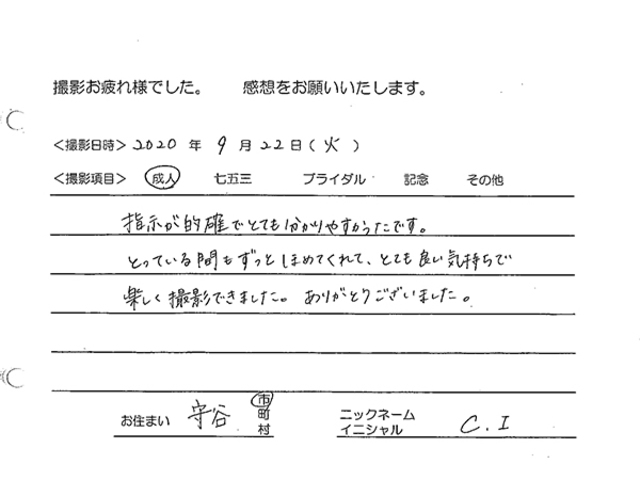 撮影お疲れ様でした。 感想をお願いいたします。
<撮影日時> 2020 年 9 月 22 日 ( 火 )
<撮影項目> 成人 七五三 ブライダル 記念 その他
指示が的確でとても分かりやすかったです。
とっている間もずっとほめてくれて、とても良い気持ちで
楽しく撮影できました。ありがとうございました。
お住まい 守谷 市 町 村
ニックネーム
イニシャル C. I